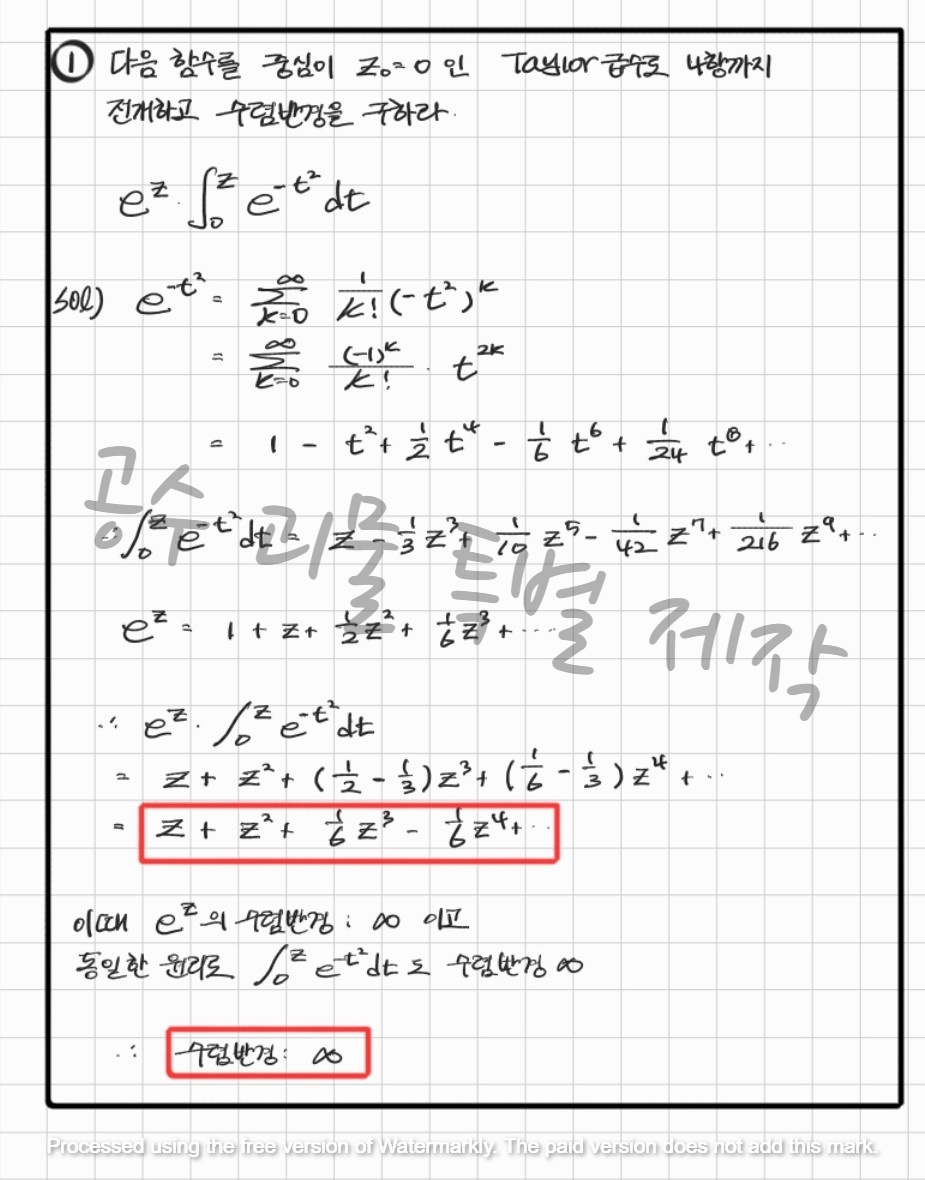 ① 다음 함수를 중심이 z₀=0 인 Taylor 급수로 4항까지
전개하고 수렴반경을 구하라.
e^z · ∫₀^z e^(-t²) dt
sol) e^(-t²) = Σ_(k=0)^∞ 1/k! (-t²)^k
= Σ_(k=0)^∞ (-1)^k/k! · t^(2k)
= 1 - t² + 1/2 t⁴ - 1/6 t⁶ + 1/24 t⁸ + ···
∴ ∫₀^z e^(-t²) dt = z - 1/3 z³ + 1/10 z⁵ - 1/42 z⁷ + 1/216 z⁹ + ···
공수 리물 특별 제작
e^z = 1 + z + 1/2 z² + 1/6 z³ + ····
∴ e^z · ∫₀^z e^(-t²) dt
= z + z² + (1/2 - 1/3) z³ + (1/6 - 1/3) z⁴ + ···
= z + z² + 1/6 z³ - 1/6 z⁴ + ···
이때 e^z의 수렴반경 : ∞ 이고
동일한 원리로 ∫₀^z e^(-t²) dt 도 수렴반경 ∞
∴ 수렴반경 : ∞
Processed using the free version of Watermarkly. The paid version does not add this mark.